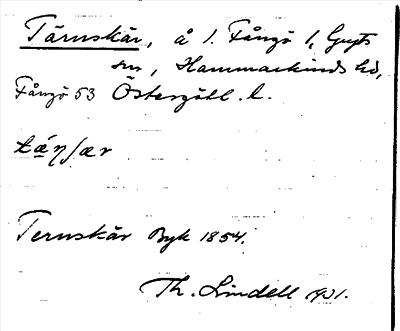 Tärnskär, å l. Fångö 1, Gryts
sn, Hammarkinds hd,
Fångö 53 Östergötl. l.
tä́ŋʃær
Ternskär Byk 1854.
Th. Lindell 1931.